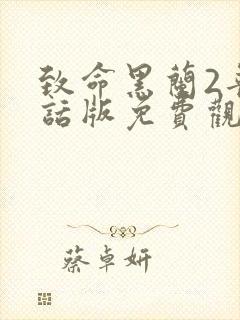 致命黑蘭2
話版免費觀
蔡卓妍